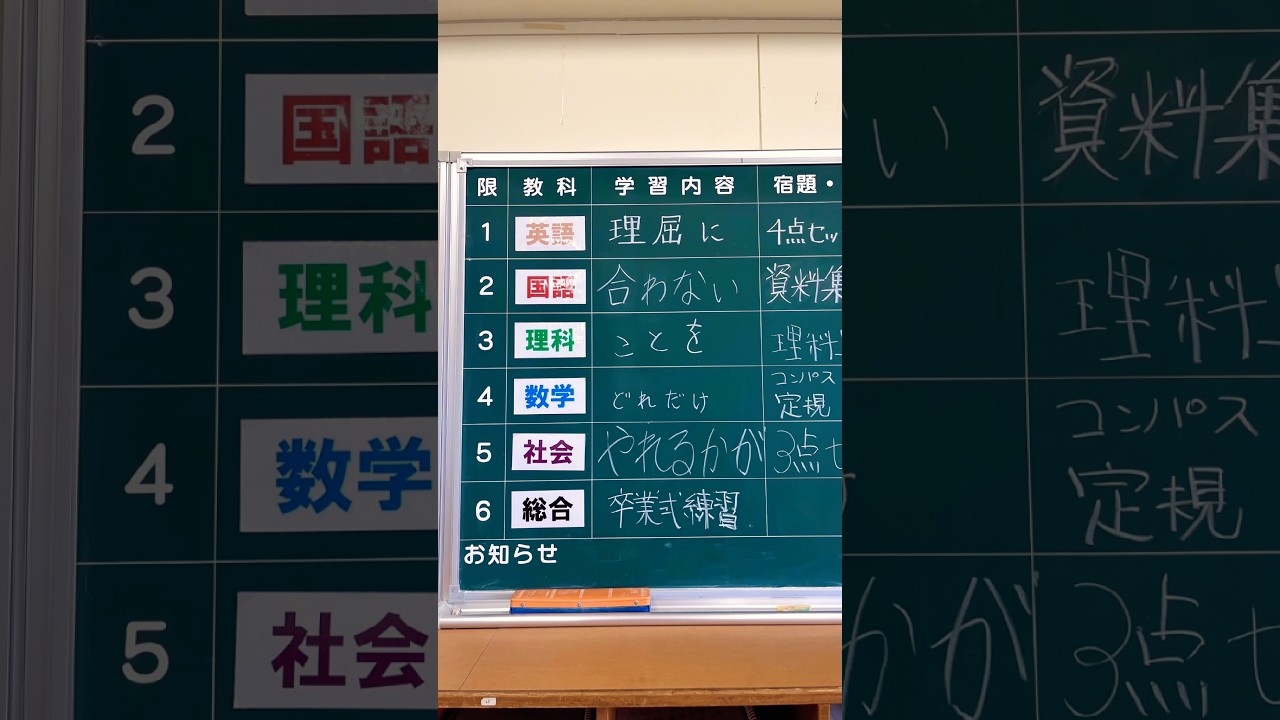 限 教科 学習内容 宿題・
1 英語 理屈に 4点セッ
2 国語 合わない 資料集
3 理科 ことを 理科
4 数学 どれだけ コンパス
定規
5 社会 やれるかが 3点セ
6 総合 卒業式練習
お知らせ